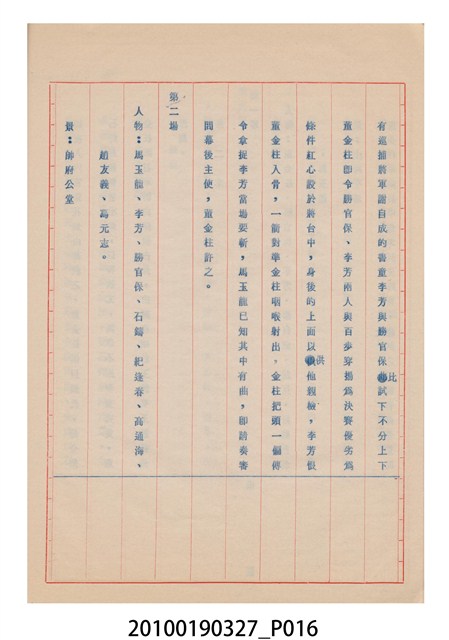 有巡捕將軍謝自成的書童李芳與勝官保比試下不分上下
董金柱即令勝官保、李芳兩人與百步穿楊為決賽優劣為
條件紅心設於將台中，身後的上面以供他觀檢，李芳恨
董金柱入骨，一箭對準金柱咽喉射出。金柱把頭一個傳
令拿捉李芳當場要斬，馬玉龍已知其中有曲，即請奏審
問幕後主使，董金柱許之。
第二場
人物：馬玉龍、李芳、勝官保、石鑄、紀逢春、高通海、
趙友義、馮元志。
景：帥府公堂
20100190327_P016